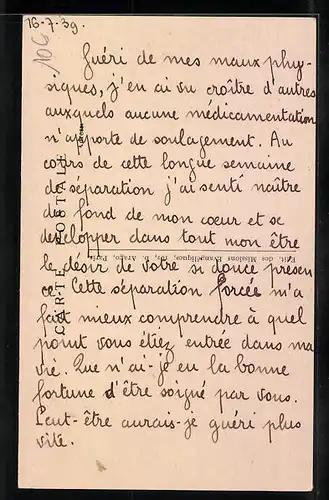 16-7-39.
106
Guéri de mes maux phy-
siques, j'en ai vu croître d'autres
auxquels aucune médicamentation
n'apporte de soulagement. Au
cours de cette longue semaine
de séparation j'ai senti naître
du fond de mon coeur et se
développer dans tout mon être
le désir de votre si douce présen
ce. Cette séparation forcée m'a
fait mieux comprendre à quel
point vous étiez entrée dans ma
vie. Que n'ai-je eu la bonne
fortune d'être soigné par vous.
Peut-être aurais-je guéri plus
vite.
CARTE POSTALE
Edit. des Missions Evangéliques, 102, B. Arago, Paris